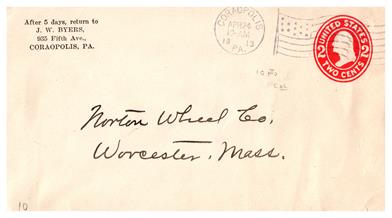 After 5 days, return to
J. W. BYERS,
935 Fifth Ave.,
CORAOPOLIS, PA.
CORAOPOLIS
APR 24
12-AM
1913
PA.
UNITED STATES
2 2
TWO CENTS
Norton Wheel Co,
Worcester, Mass.
10